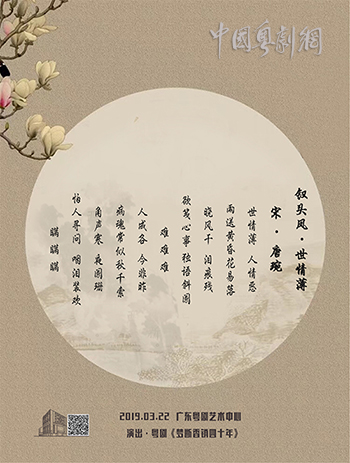 中國粵劇網
钗头凤·世情薄
宋·唐琬
世情薄 人情恶
雨送黄昏花易落
晓风干 泪痕残
欲笺心事 独语斜阑
难 难 难
人成各 今非昨
病魂常似秋千索
角声寒 夜阑珊
怕人寻问 咽泪装欢
瞒 瞒 瞒
2019.03.22 广东粤剧艺术中心
演出·粤剧《梦断香销四十年》